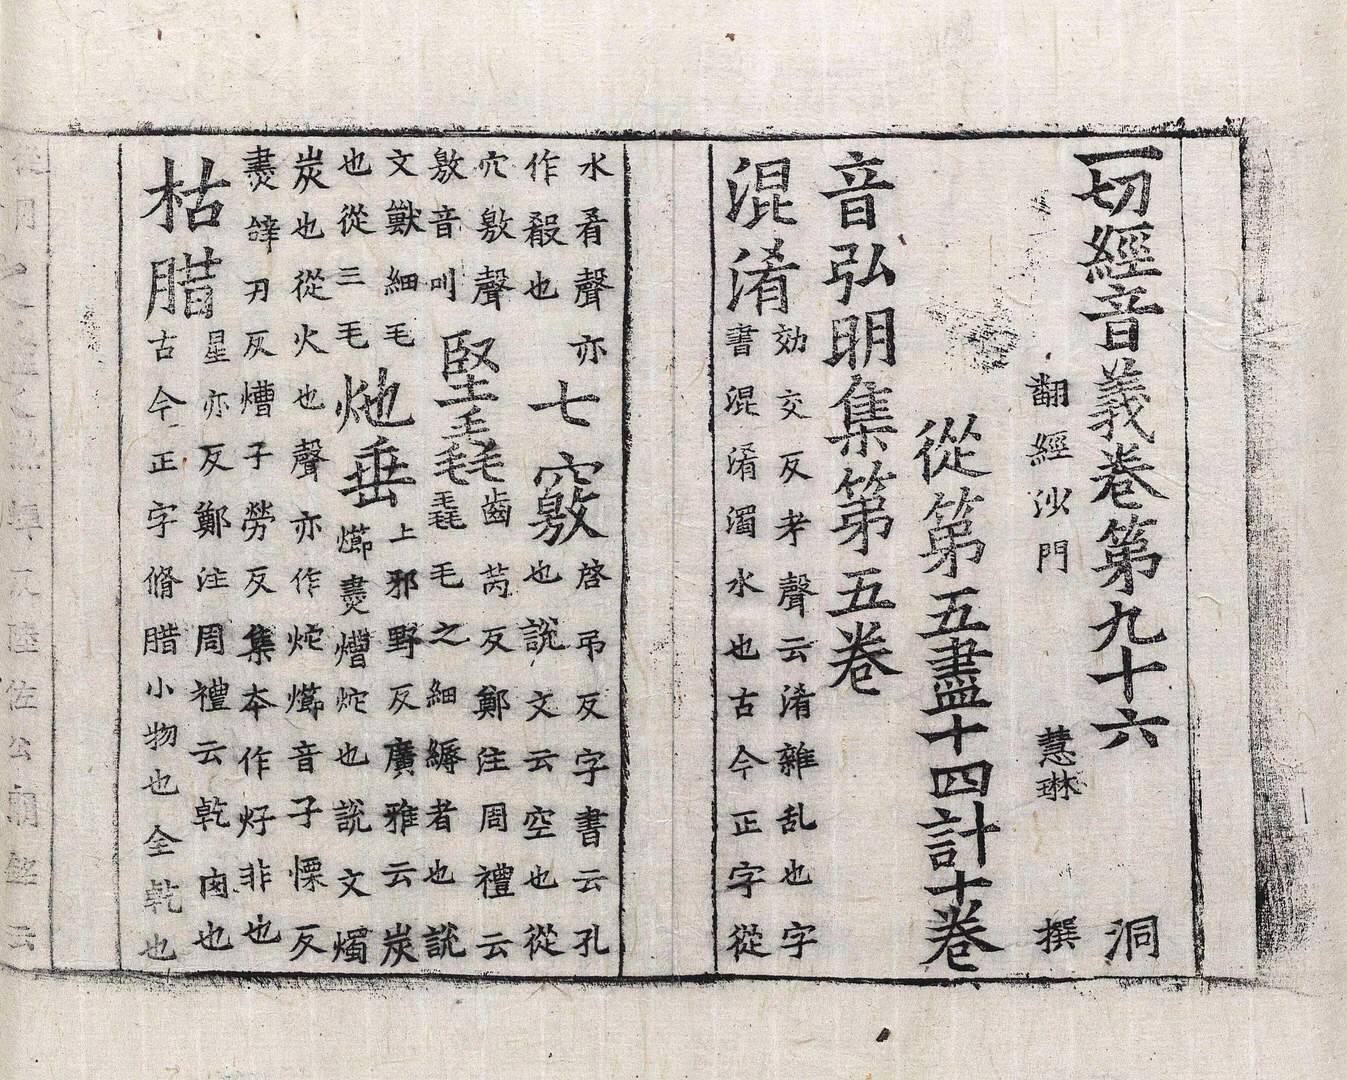 一切經音義卷第九十六 洞
翻經沙門 慧琳 撰
從第五盡十四計十卷
音弘明集第五卷
混淆
効交反孝聲云淆雜乱也字
書混淆濁水也古今正字從
水肴聲亦
作殽也
七竅
啓吊反字書云孔
也說文云空也從
穴敫聲
敫音叫
堅毳
齒芮反鄭注周禮云
毳毛之細縟者也說
文獸細毛
也從三毛
炧垂
上邪野反廣雅云炭
㸅燼熷炧也說文燭
炭也從火也聲亦作炨㸅音子慄反
燼辝刃反熷子勞反集本作灯非也
枯腊
星亦反鄭注周禮云乾肉也
古今正字脩腊小物也全乾也